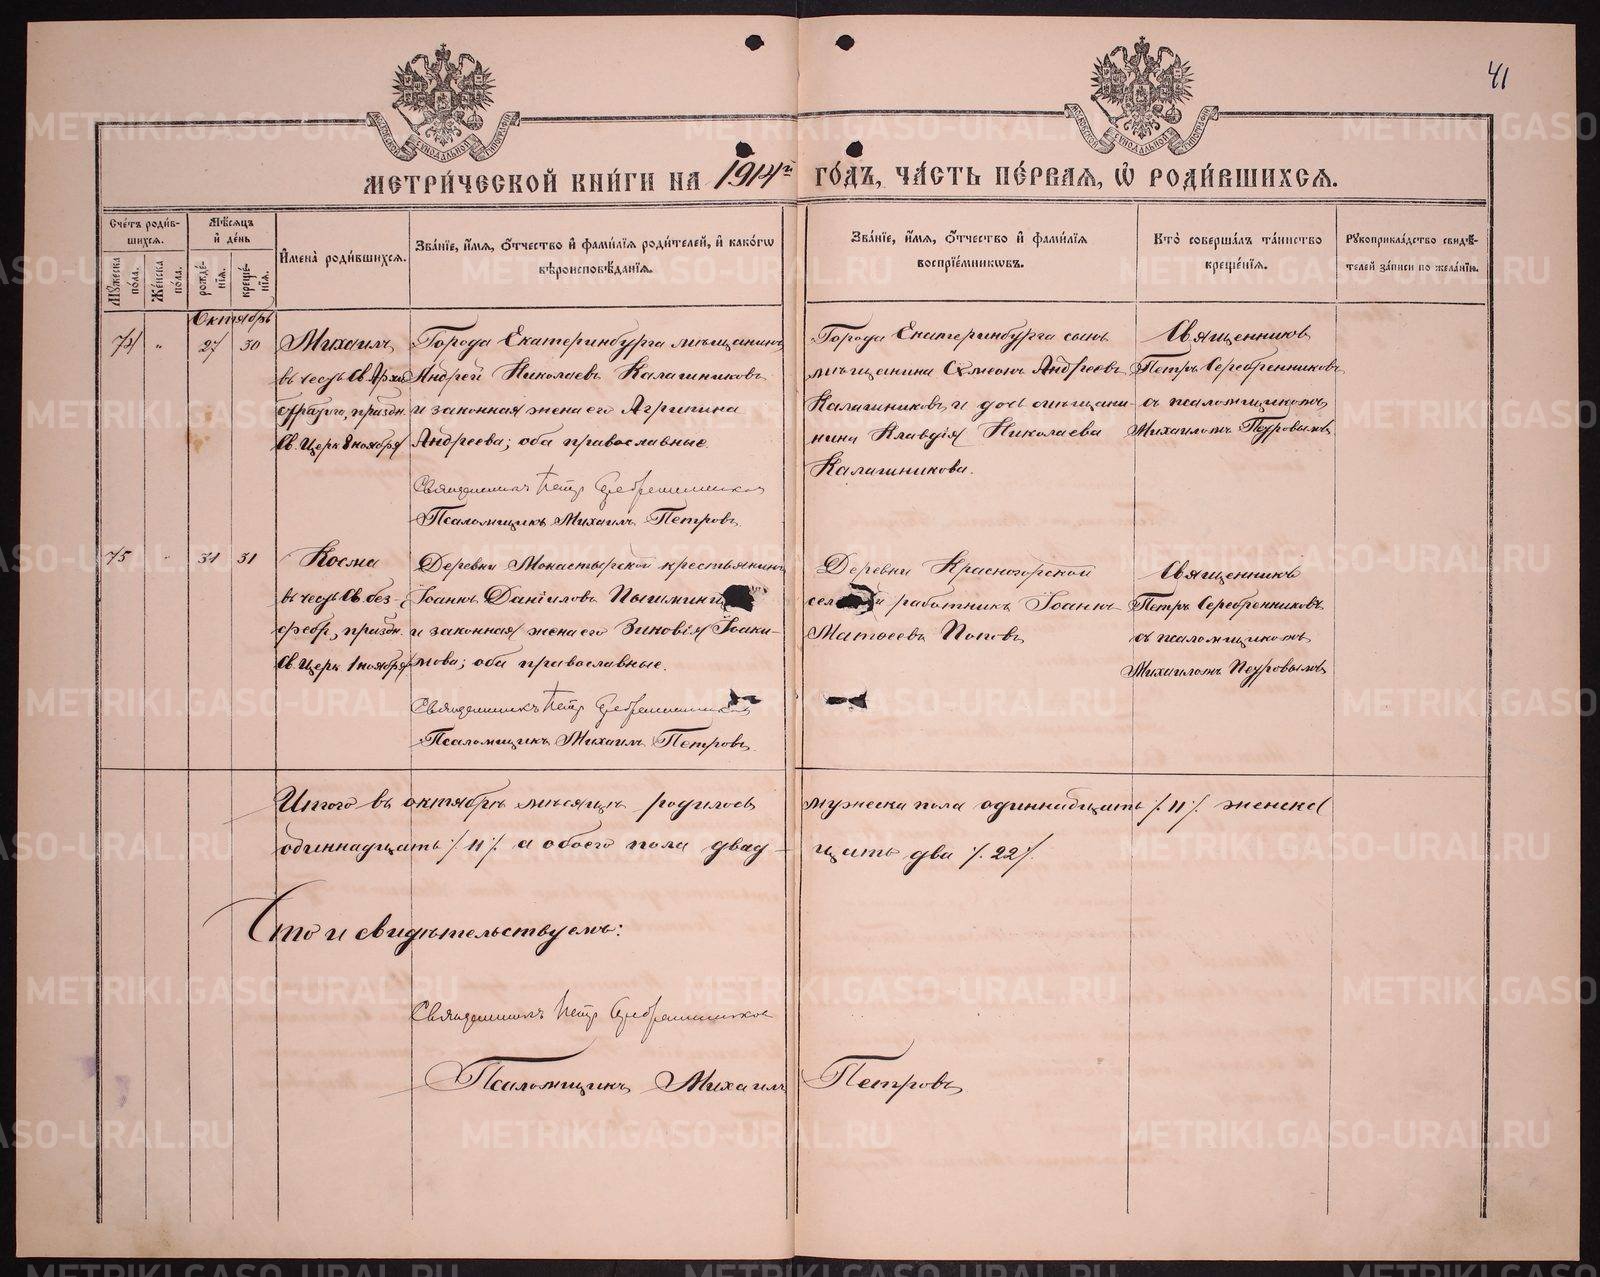 41
МОСКОВСКОЙ СѴНОДАЛЬНОЙ ТИПОГРАФІИ
МОСКОВСКОЙ СѴНОДАЛЬНОЙ ТИПОГРАФІИ
МЕТРИ́ЧЕСКОЙ КНИ́ГИ НА 1914й ГО́ДЪ, ЧА́СТЬ ПЕ́РВАЯ, Ѽ РОДИ́ВШИХСЯ.
Сче́тъ роди́в-
шихся.
Мѹ́жеска по́ла.
Же́нска по́ла.
Мѣ́сяцъ
и҆ де́нь
рожде́-
нїя.
креще́-
нїя.
И҆мена̀ роди́вшихся.
Зва́нїе, и҆́мя, ѻ҆́тчество и҆ фами́лїя роди́телей, и҆ како́гѡ
вѣроисповѣ́данїя.
Зва́нїе, и҆́мя, ѻ҆́тчество и҆ фами́лїя
воспрїе́мникѡвъ.
Кто̀ соверша́лъ та́инство
креще́нїя.
Рѹкоприкла́дство свидѣ́-
телей за́писи по жела́нїю.
Октябрь
74 " 27 30
Михаилъ
въ честь Св. Архи
стратига, праздн.
Св. Церк 8 ноября
Города Екатеринбурга мѣщанинъ
Андрей Николаевъ Калашниковъ
и законная жена его Агрипина
Андреева; оба православные.
Священникъ Петръ Серебренниковъ
Псаломщикъ Михаилъ Петровъ
Города Екатеринбурга сынъ
мѣщанина Сѵмеонъ Андреевъ
Калашниковъ и дочь мѣщани-
нина Клавдія Николаева
Калашникова.
Священникъ
Петръ Серебренниковъ
съ псаломщикомъ
Михаиломъ Петровымъ
75 " 31 31
Косма
въ честь Св. без-
сребр., праздн.
Св. Церк 1 ноября
Деревни Монастырской крестьянинъ
Іоаннъ Даніиловъ
и законная жена его Зиновія Іоаки-
мова; оба православные.
Священникъ Петръ Серебренниковъ
Псаломщикъ Михаилъ Петровъ
Деревни Красногорской
работникъ Іоаннъ
Матѳеевъ Поповъ
Священникъ
Петръ Серебренниковъ
съ псаломщикомъ
Михаиломъ Петровымъ
Итого въ октябрѣ мѣсяцѣ родилось мужеска пола одиннадцать /. 11 /. женска
одиннадцать /. 11 /. а обоего пола двад- цать два /. 22 /.
Что и свидѣтельствуемъ:
Священникъ Петръ Серебренниковъ
Псаломщикъ Михаилъ Петровъ
METRIKI.GASO-URAL.RU